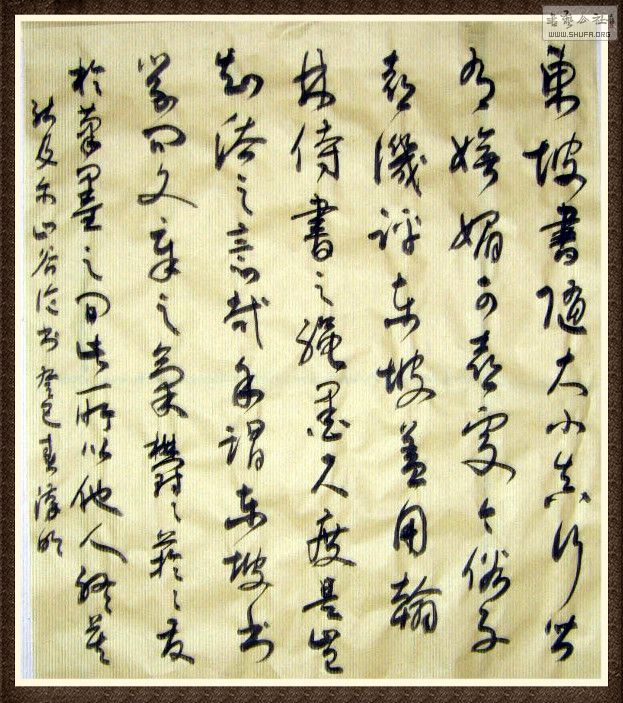 書藝公社
WWW.SHUFA.ORG
東坡書隨大小真行皆
有嫵媚可喜處今俗子
喜譏評東坡蓋用翰
林侍書之繩墨尺度是豈
知法之意哉余謂東坡書
學問文章之氣鬱々芊々發
於筆墨之間此所以他人終莫
能及爾山谷論書癸巳春